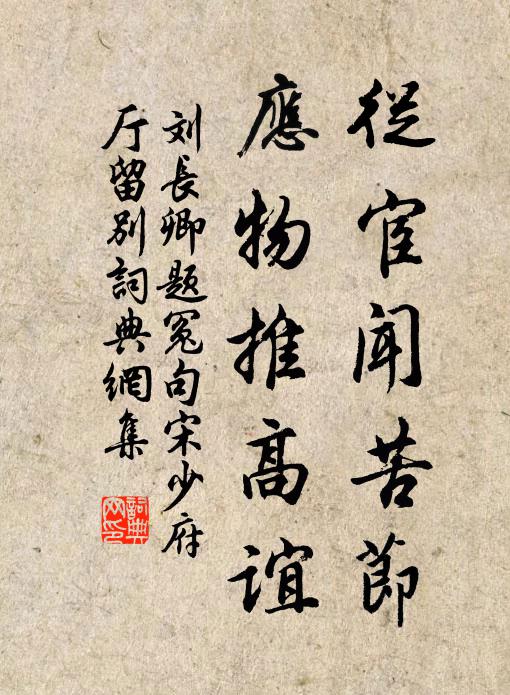 從宦聞苦節
應物推高誼
刘長卿題冤句宋少府
厅留別詞典網集
詞典
网印